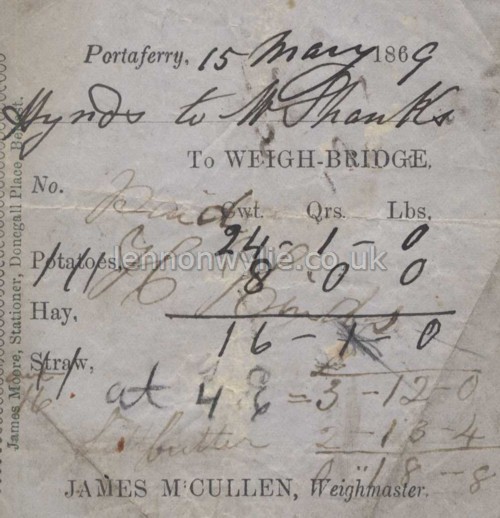 Portaferry, 15 May 1869
Hynds to Mr Shanks
To WEIGH-BRIDGE,
No.
Paid
Cwt. Qrs. Lbs.
24 - 1 - 0
Potatoes,
8 0 0
lennonwylie.co.uk
Hay,
16 - 1 - 0
Straw,
at 4 6 = 3 - 12 - 0
butter 2 - 13 - 4
18 - 8
JAMES McCULLEN, Weighmaster.
James Moore, Stationer, Donegall Place, Belfast.